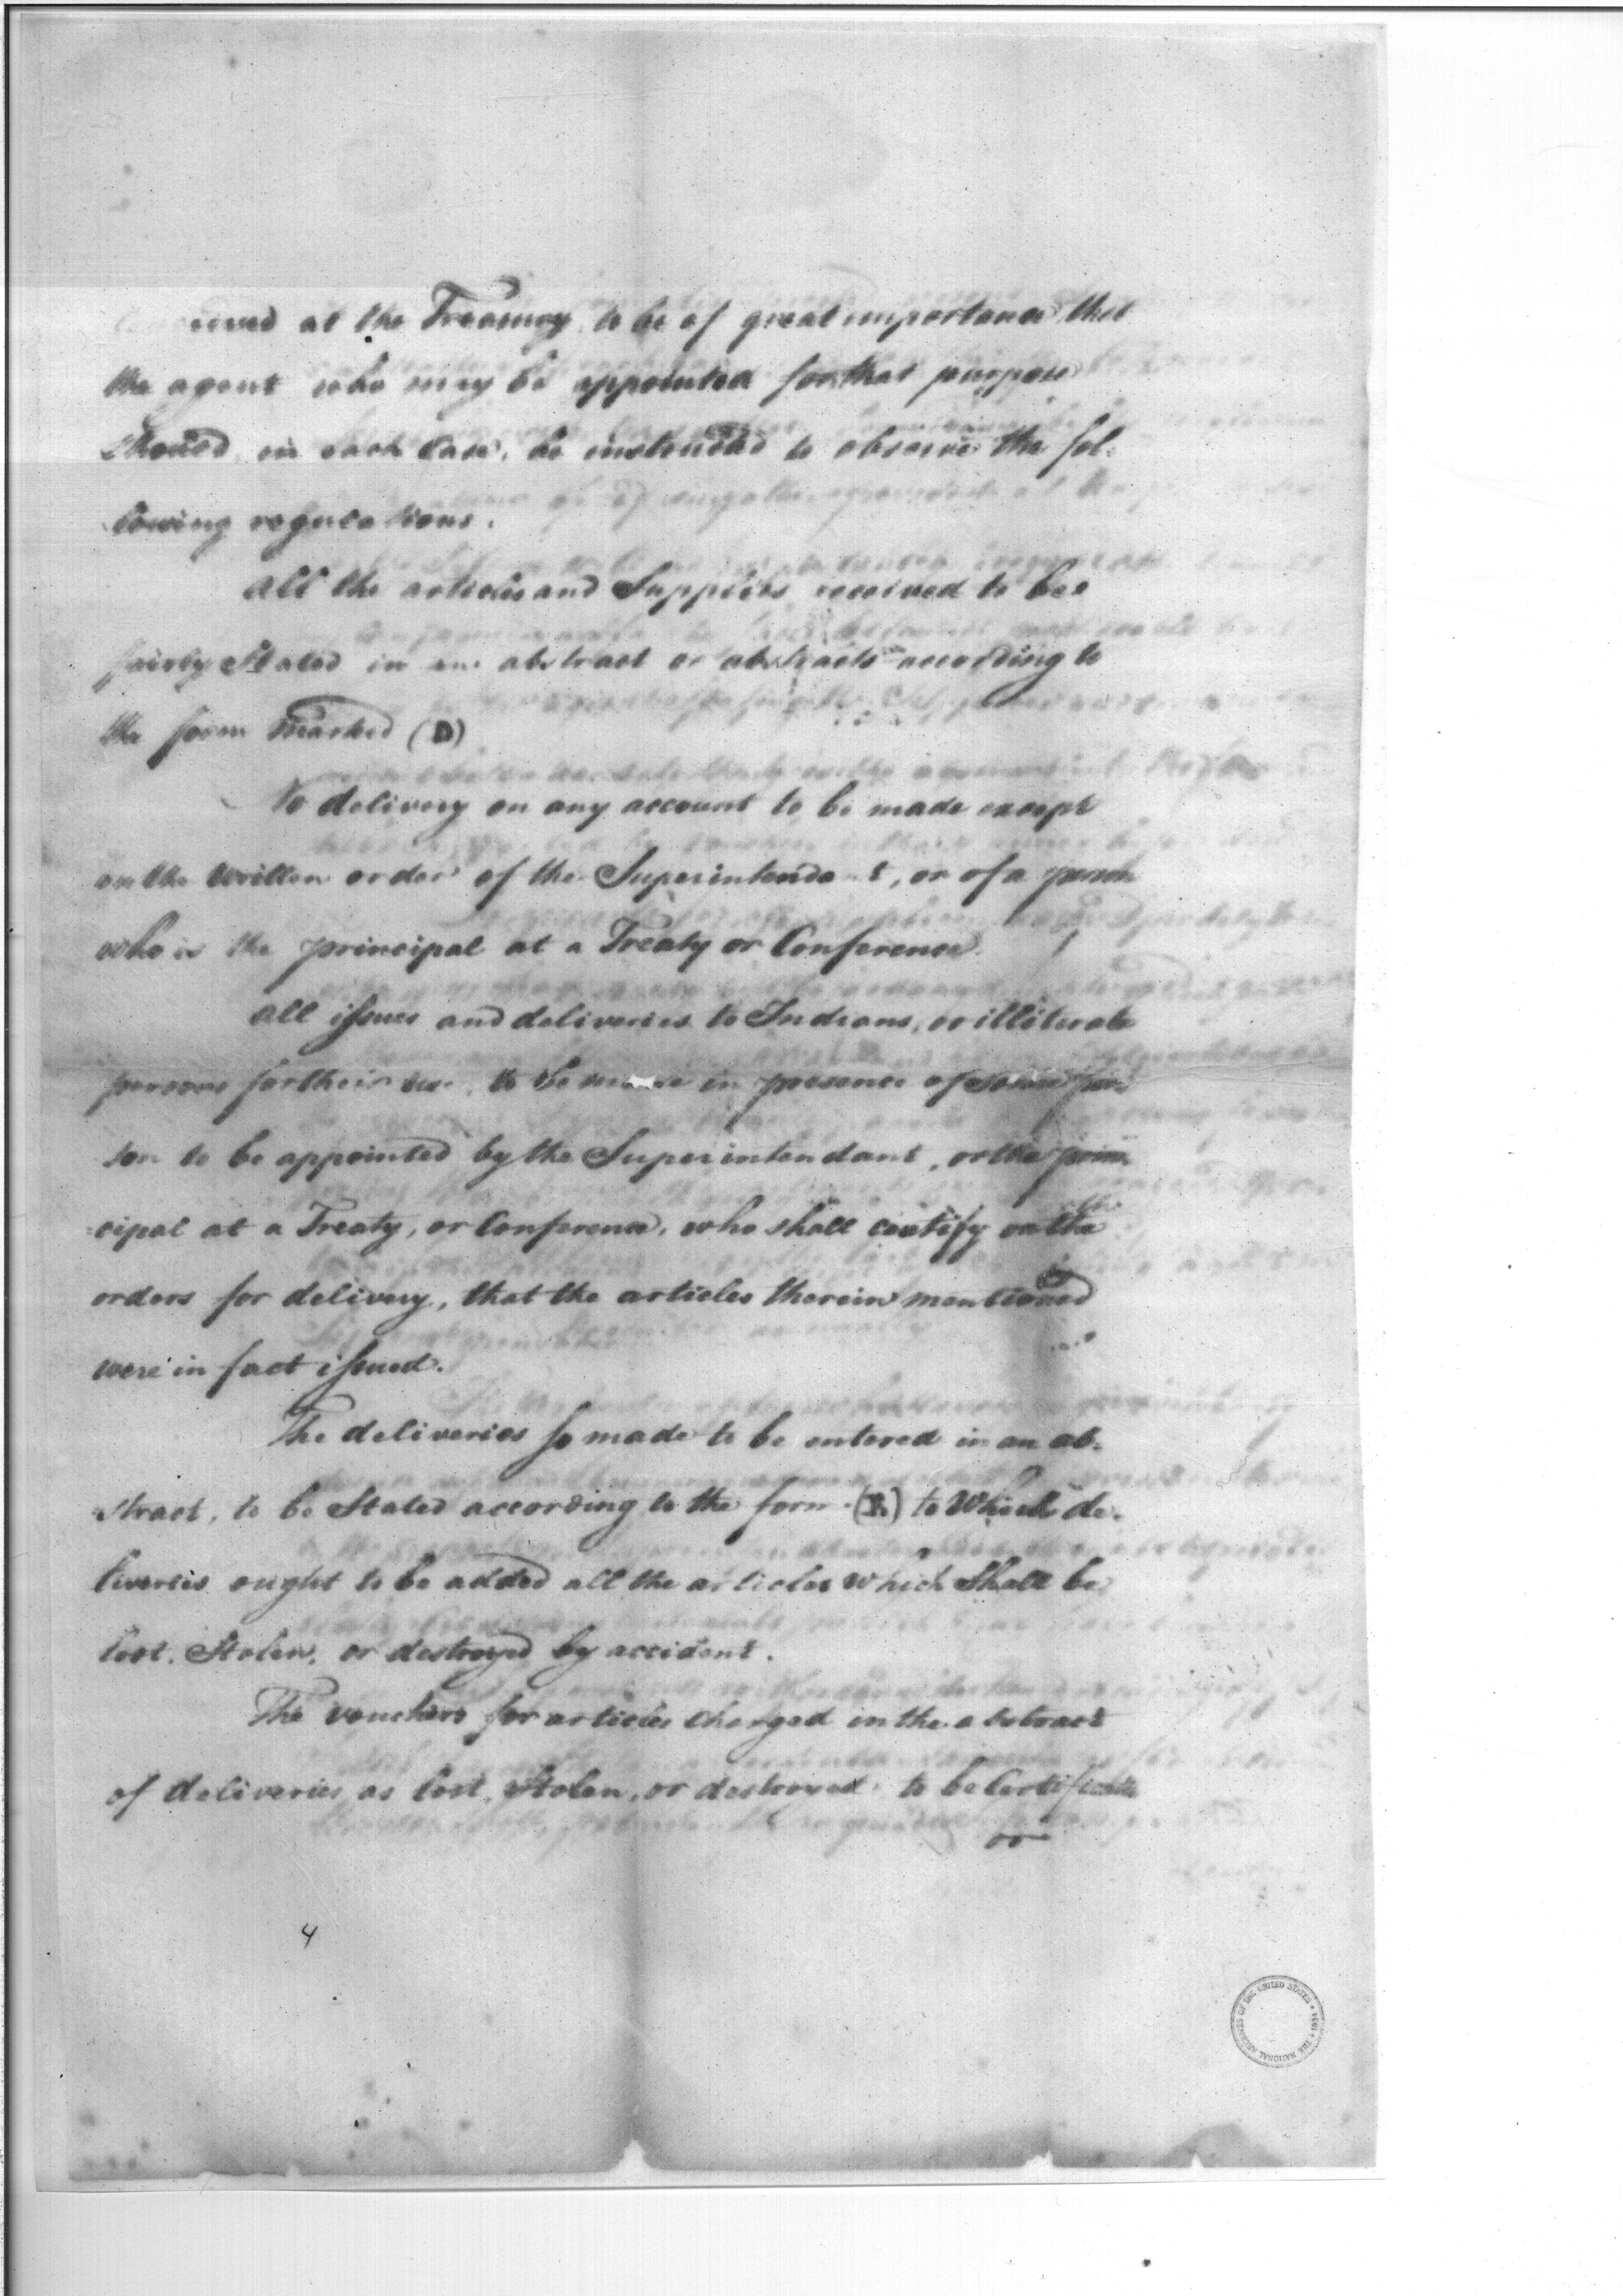 ceived at the Treasury to be of great importance that
the agent who may be appointed for that purpose
should in each Case, be instructed to observe the fol-
lowing regulations.
All the articles and Supplies received to be
fairly Stated in an abstract or abstracts according to
the form marked (D)
No delivery on any account to be made except
on the written order of the Superintendant, or of a person
who is the principal at a Treaty or Conference.
All issues and deliveries to Indians, or illiterate
persons for their use, to be made in presence of some per-
son to be appointed by the Superintendant, or the prin-
cipal at a Treaty, or Conference, who shall certify on the
orders for delivery, that the articles therein mentioned
were in fact issued.
The deliveries so made to be entered in an ab-
stract, to be Stated according to the form to which de-
liveries ought to be added all the articles which Shall be
lost, Stolen, or destroyed by accident.
The vouchers for articles charged in the abstract
of deliveries as lost, Stolen, or destroyed to be Certificates
or
4
THE NATIONAL ARCHIVES OF THE UNITED STATES 1934